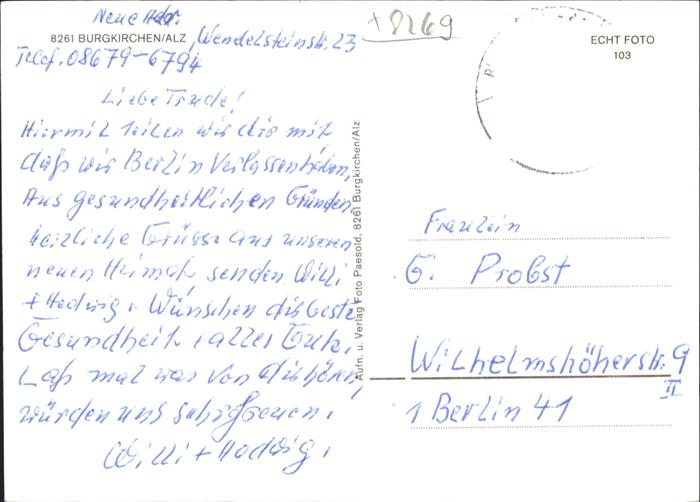 Neue Adr.
8261 BURGKIRCHEN/ALZ, Wendelsteinstr. 23
Telef. 08679-6794
+ 8269
ECHT FOTO
103
Liebe Trude!
Hiermit teilen wir dir mit,
daß wir Berlin Verlassen haben,
Aus gesundheitlichen Gründen.
herzliche Grüsse aus unseren
neuen Heimat, senden Willi
+ Hedwig. Wünschen dir beste
Gesundheit. alles Gute.
Laß mal was von dir hören,
würden uns sehr freuen.
Willi + Hedwig.
Aufn. u. Verlag Foto Paesold, 8261 Burgkirchen/Alz
Fraulein
G. Probst
Wilhelmshöherstr. 9
II
1 Berlin 41